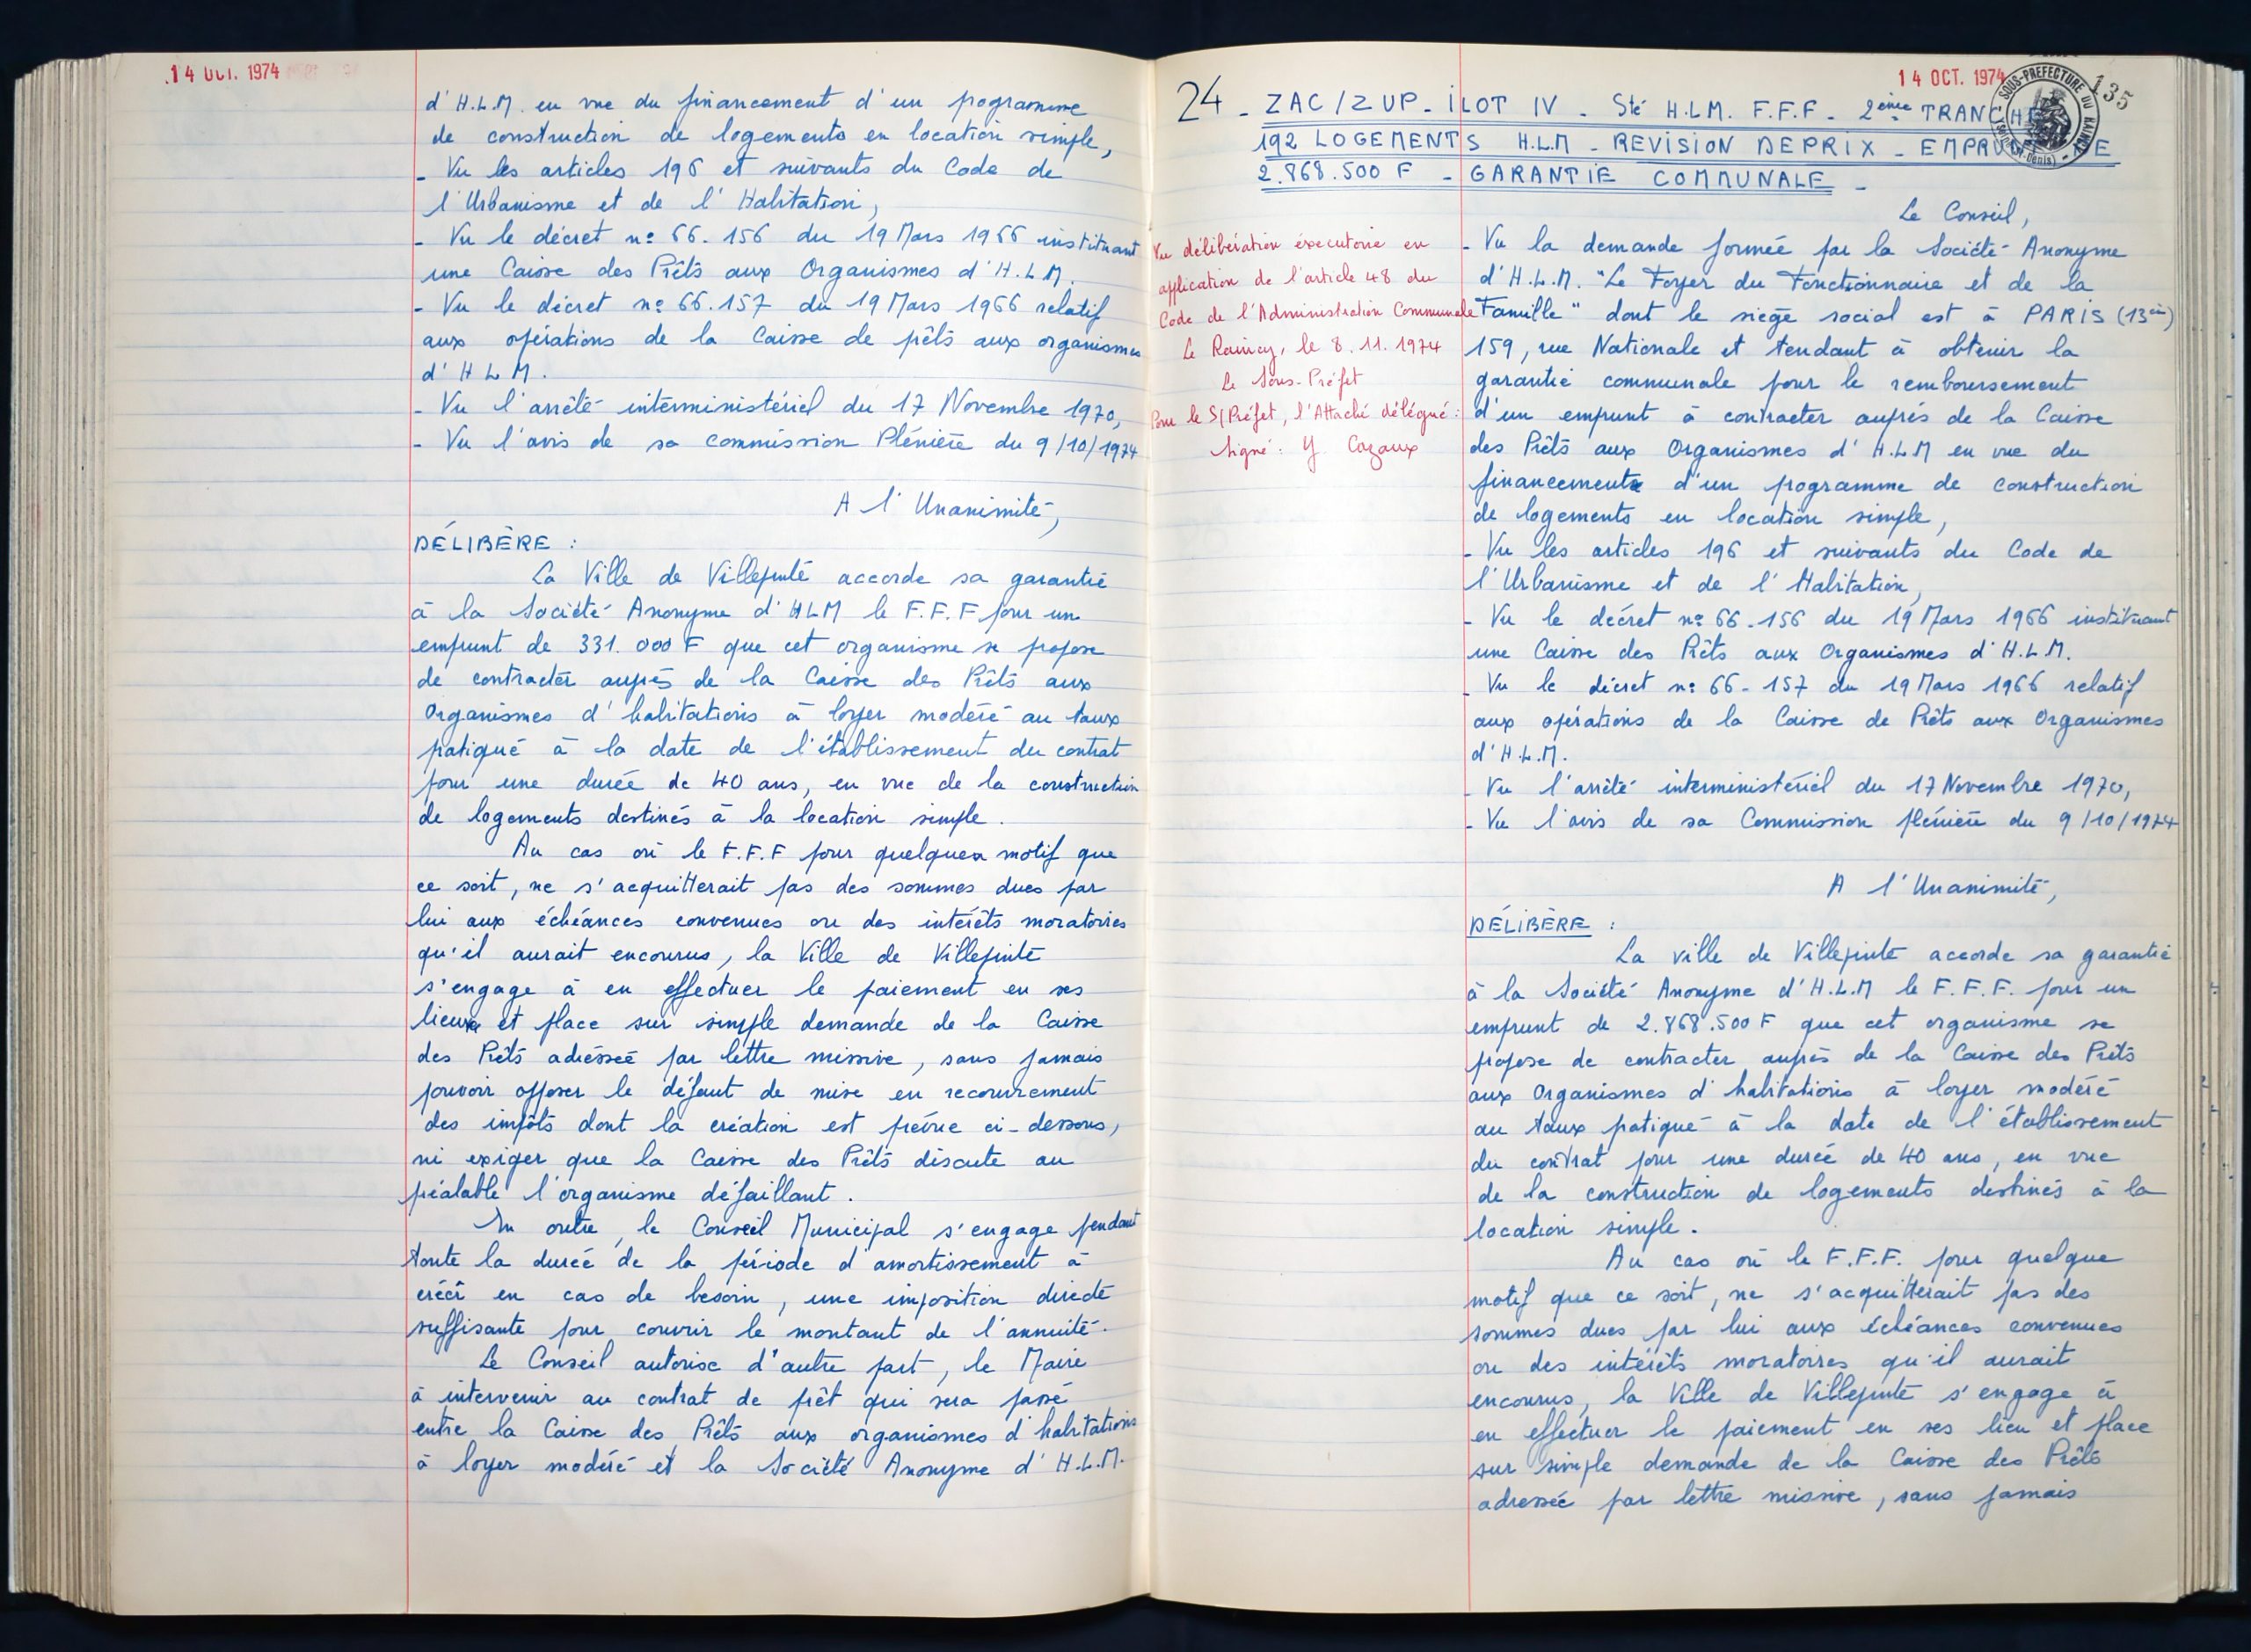 14 OCT. 1974
d'H.L.M. en vue du financement d'un programme
de construction de logements en location simple,
- Vu les articles 196 et suivants du Code de
l'Urbanisme et de l'Habitation,
- Vu le décret n° 66.156 du 19 Mars 1966 instituant
une Caisse des Prêts aux Organismes d'H.L.M.
- Vu le décret n° 66.157 du 19 Mars 1966 relatif
aux opérations de la Caisse de prêts aux organismes
d'H L M.
- Vu l'arrêté interministériel du 17 Novembre 1970,
- Vu l'avis de sa commission Plénière du 9/10/1974
A l'Unanimité,
DÉLIBÈRE :
La Ville de Villepinte accorde sa garantie
à la Société Anonyme d'HLM le F.F.F pour un
emprunt de 331.000 F que cet organisme se propose
de contracter auprès de la Caisse des Prêts aux
Organismes d'habitations à loyer modéré au taux
pratiqué à la date de l'établissement du contrat
pour une durée de 40 ans, en vue de la construction
de logements destinés à la location simple.
Au cas où le F.F.F pour quelque motif que
ce soit, ne s'acquitterait pas des sommes dues par
lui aux échéances convenues ou des intérêts moratoires
qu'il aurait encourus, la Ville de Villepinte
s'engage à en effectuer le paiement en ses
lieu et place sur simple demande de la Caisse
des Prêts adressée par lettre missive, sans jamais
pouvoir opposer le défaut de mise en recouvrement
des impôts dont la création est prévue ci-dessous,
ni exiger que la Caisse des Prêts discute au
préalable l'organisme défaillant.
En outre, le Conseil Municipal s'engage pendant
toute la durée de la période d'amortissement à
créer en cas de besoin, une imposition directe
suffisante pour couvrir le montant de l'annuité.
Le Conseil autorise d'autre part, le Maire
à intervenir au contrat de prêt qui sera passé
entre la Caisse des Prêts aux organismes d'habitations
à loyer modéré et la Société Anonyme d'H.L.M.
14 OCT. 1974
SOUS-PREFECTURE DU RAINCY
135
24 - ZAC/ZUP - ILOT IV - Sté H.L.M. F.F.F - 2ème TRANCHE
192 LOGEMENTS H.L.M - REVISION DE PRIX - EMPRUNT DE
2.868.500 F - GARANTIE COMMUNALE -
Le Conseil,
Vu délibération éxecutoire en
application de l'article 48 du
Code de l'Administration Communale
Le Raincy, le 8.11.1974
Le Sous-Préfet
Pour le S/Préfet, l'Attaché délégué :
Signé : Y Cazaux
- Vu la demande formée par la Société Anonyme
d'H.L.M. "Le Foyer du Fonctionnaire et de la
Famille" dont le siège social est à PARIS (13è)
159, rue Nationale et tendant à obtenir la
garantie communale pour le remboursement
d'un emprunt à contracter auprès de la Caisse
des Prêts aux Organismes d'H.L.M en vue du
financement d'un programme de construction
de logements en location simple,
- Vu les articles 196 et suivants du Code de
l'Urbanisme et de l'Habitation,
- Vu le décret n° 66-156 du 19 Mars 1966 instituant
une Caisse des Prêts aux Organismes d'H.L.M.
- Vu le décret n° 66-157 du 19 Mars 1966 relatif
aux opérations de la Caisse de Prêts aux Organismes
d'H.L.M.
- Vu l'arrêté interministériel du 17 Novembre 1970,
- Vu l'avis de sa Commission plénière du 9/10/1974
A l'Unanimité,
DÉLIBÈRE :
La ville de Villepinte accorde sa garantie
à la Société Anonyme d'H.L.M le F.F.F. pour un
emprunt de 2.868.500 F que cet organisme se
propose de contracter auprès de la Caisse des Prêts
aux Organismes d'habitations à loyer modéré
au taux pratiqué à la date de l'établissement
du contrat pour une durée de 40 ans, en vue
de la construction de logements destinés à la
location simple.
Au cas où le F.F.F. pour quelque
motif que ce soit, ne s'acquitterait pas des
sommes dues par lui aux échéances convenues
ou des intérêts moratoires qu'il aurait
encourus, la Ville de Villepinte s'engage à
en effectuer le paiement en ses lieu et place
sur simple demande de la Caisse des Prêts
adressée par lettre missive, sans jamais